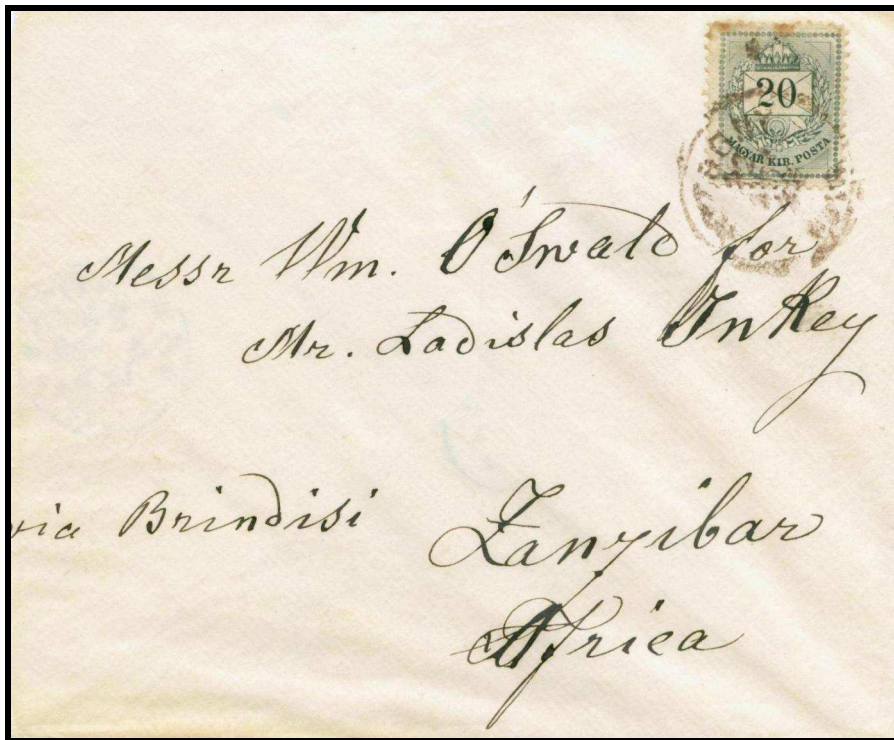 20
MAGYAR KIR. POSTA
Messr Wm. O'Swald for
Mr. Ladislas Inkey
via Brindisi
Zanzibar
Africa